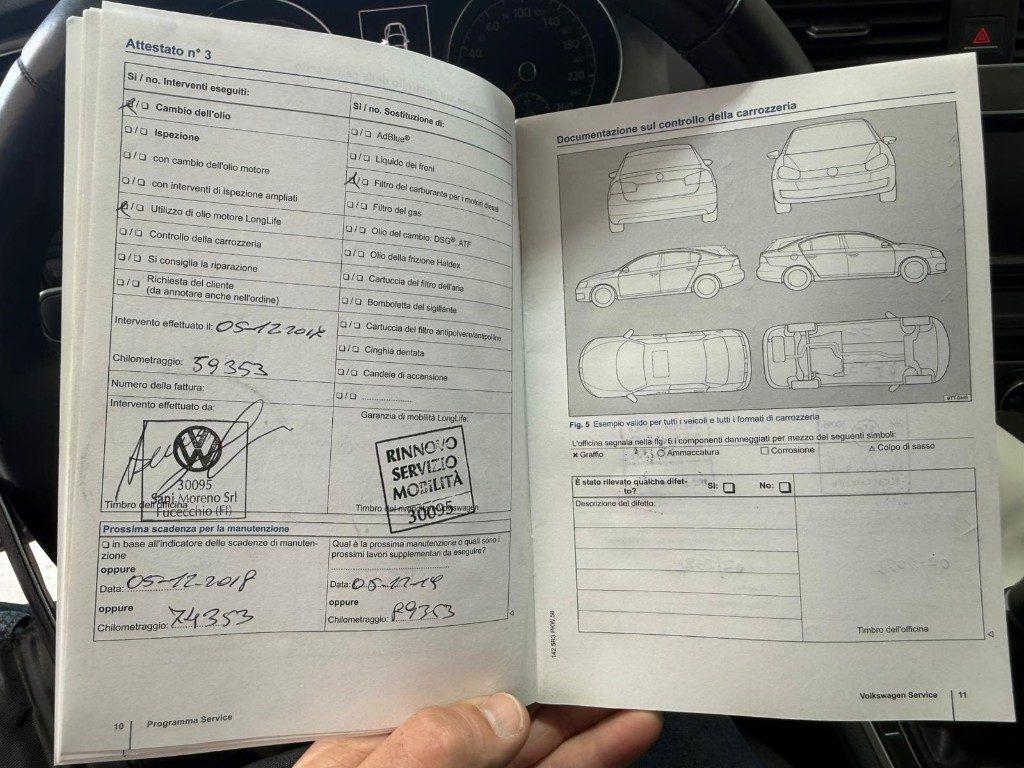 Attestato n° 3
Si / no. Interventi eseguiti:
❑/❑ Cambio dell'olio
❑/❑ Ispezione
❑/❑ con cambio dell'olio motore
❑/❑ con interventi di ispezione ampliati
❑/❑ Utilizzo di olio motore LongLife
❑/❑ Controllo della carrozzeria
❑/❑ Si consiglia la riparazione
❑/❑ Richiesta del cliente
(da annotare anche nell'ordine)
Si / no. Sostituzione di:
❑/❑ AdBlue®
❑/❑ Liquido dei freni
❑/❑ Filtro del carburante per i motori diesel
❑/❑ Filtro del gas
❑/❑ Olio del cambio: DSG®, ATF
❑/❑ Olio della frizione Haldex
❑/❑ Cartuccia del filtro dell'aria
❑/❑ Bomboletta del sigillante
❑/❑ Cartuccia del filtro antipolvere/antipolline
❑/❑ Cinghia dentata
❑/❑ Candele di accensione
❑/❑ ....................
Intervento effettuato il: 05-12 2017
Chilometraggio: 59353
Numero della fattura:
Intervento effettuato da:
30095
Sani Moreno Srl
Fucecchio (FI)
Timbro dell'officina
Garanzia di mobilità LongLife:
RINNOVO
SERVIZIO
MOBILITÀ
30095
Prossima scadenza per la manutenzione
❑ in base all'indicatore delle scadenze di manuten-
zione
oppure
Data: 05-12-2018
oppure
Chilometraggio: 74353
Qual è la prossima manutenzione o quali sono i
prossimi lavori supplementari da eseguire?
Data: 05-12-19
oppure
Chilometraggio: 89353
10 Programma Service
Documentazione sul controllo della carrozzeria
Fig. 5 Esempio valido per tutti i veicoli e tutti i formati di carrozzeria
L'officina segnala nella fig. 5 i componenti danneggiati per mezzo dei seguenti simboli:
× Graffio ○ Ammaccatura □ Corrosione △ Colpo di sasso
È stato rilevato qualche difet-
to? Sì: ❑ No: ❑
Descrizione del difetto:
Timbro dell'officina
142.5R3.PKW.50
Volkswagen Service 11
100
140
180
220
260